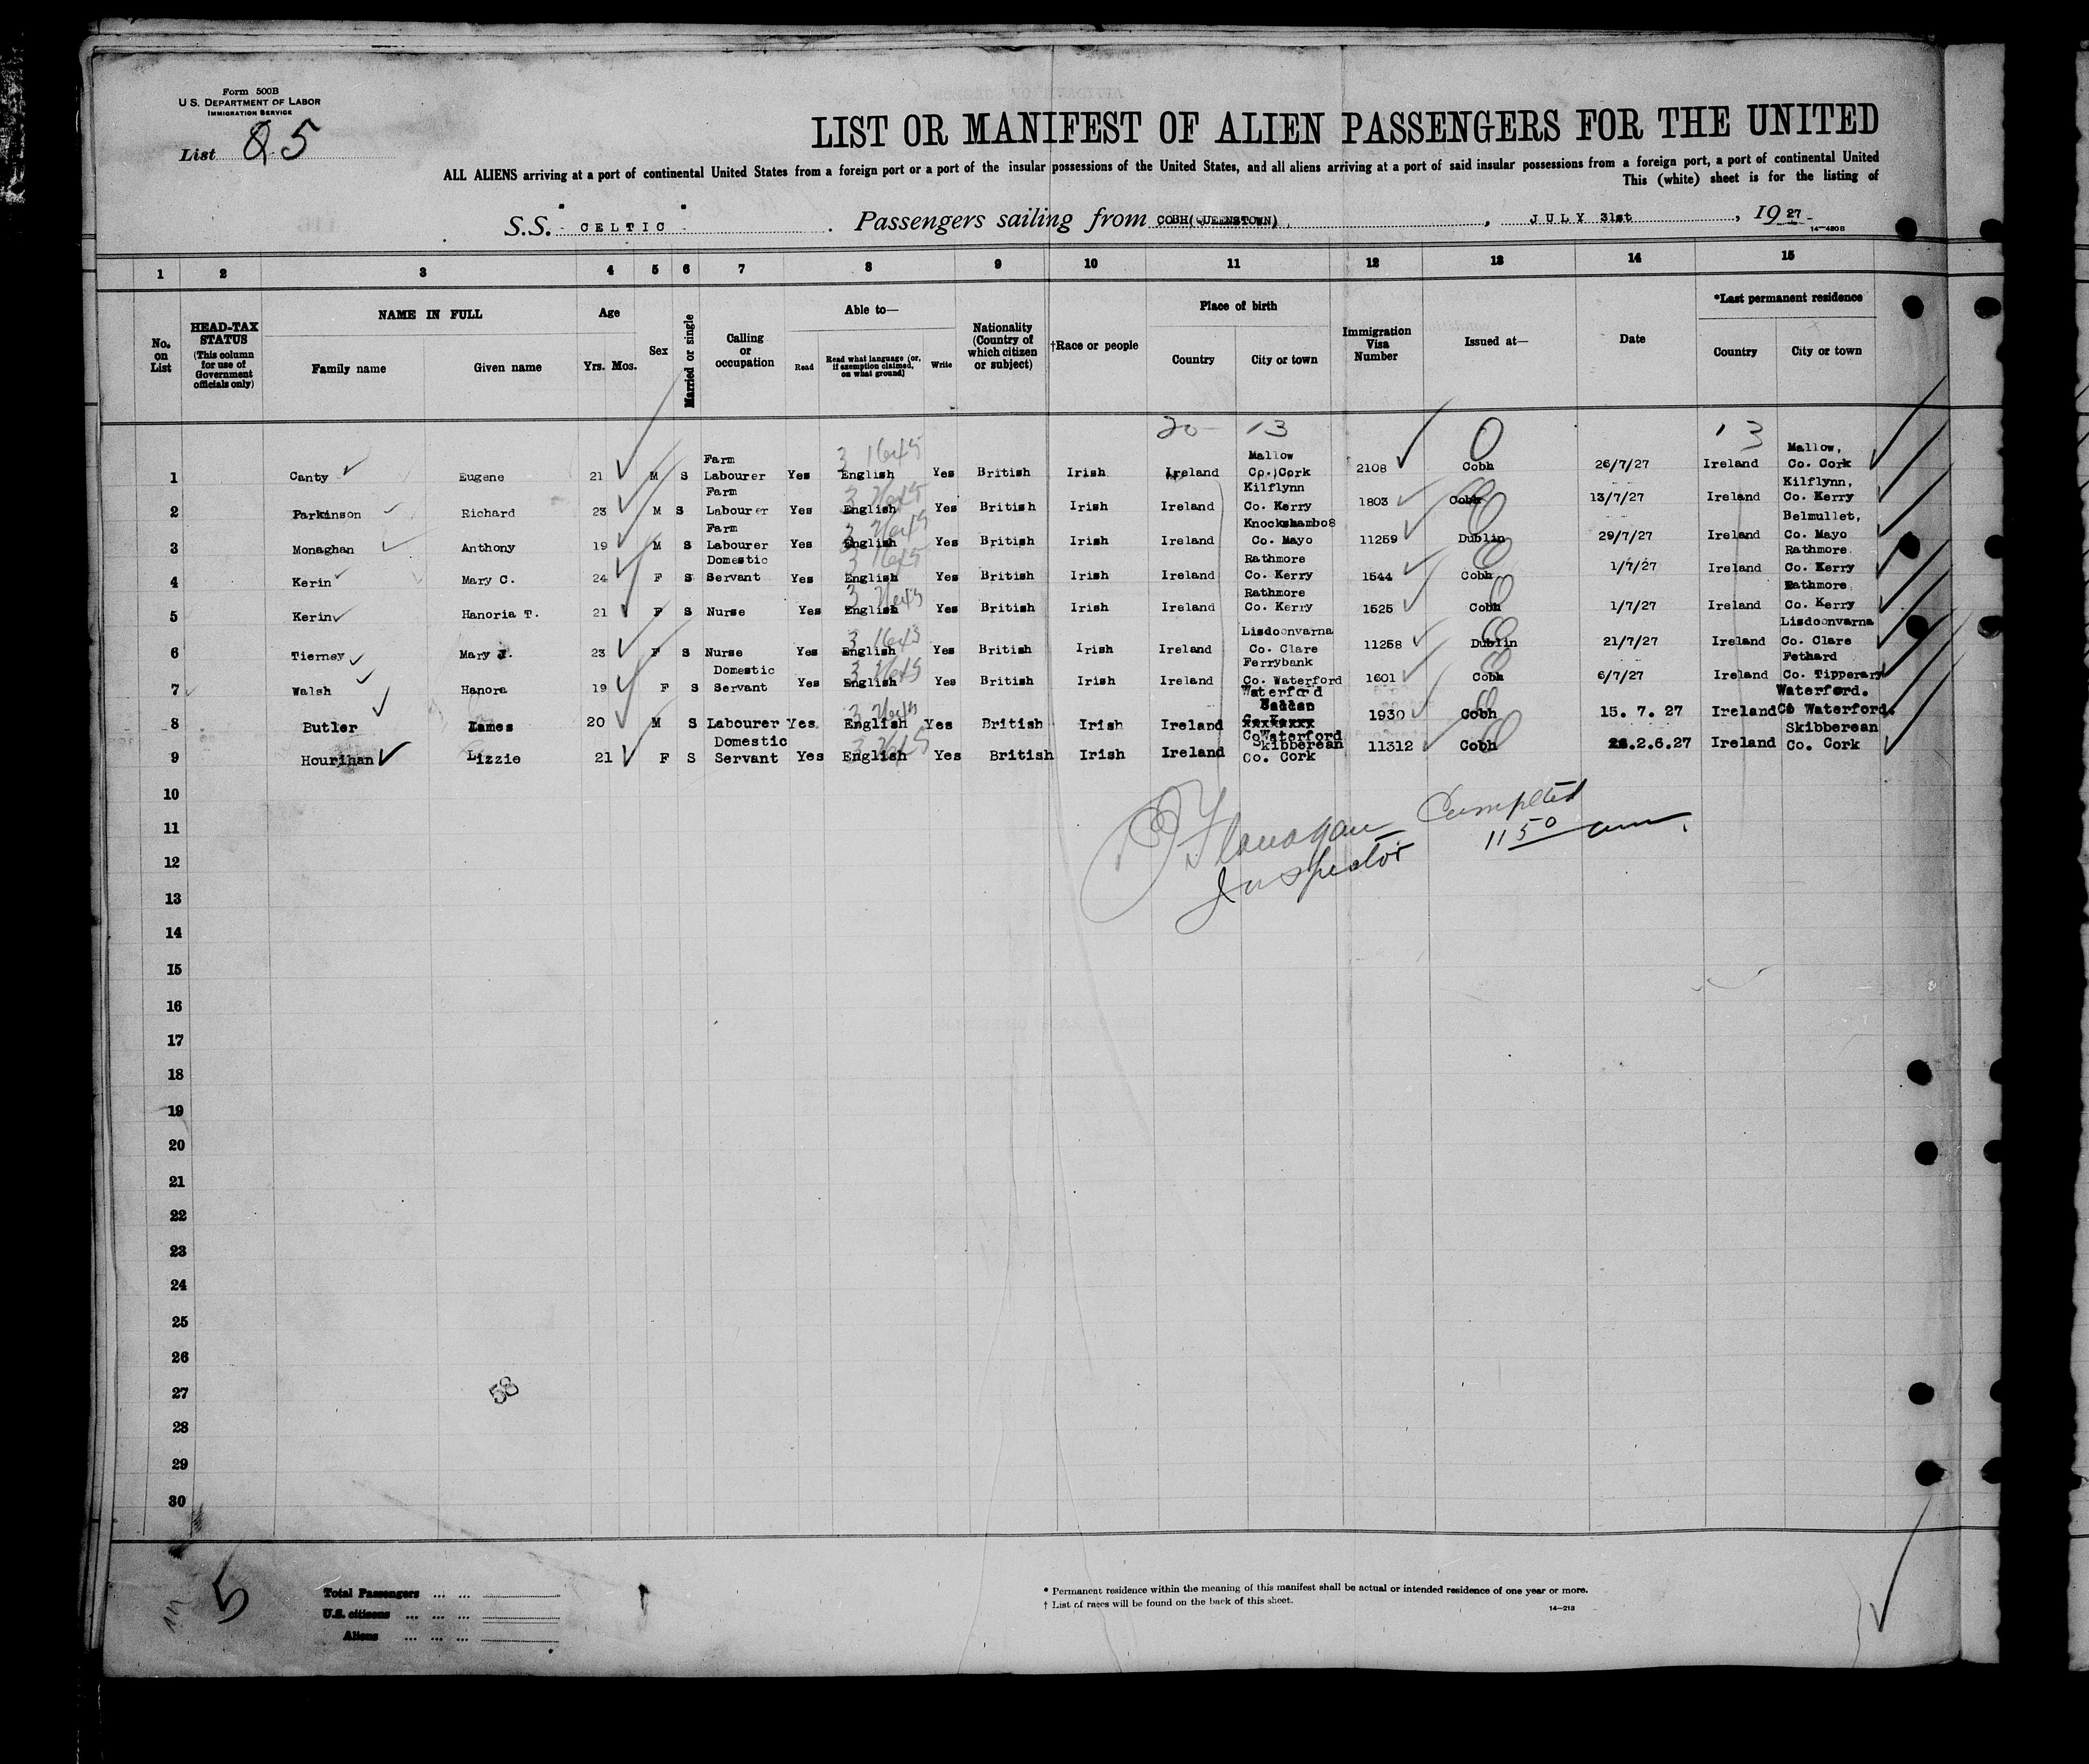 Form 500B
U.S. DEPARTMENT OF LABOR
IMMIGRATION SERVICE
List Q5
LIST OR MANIFEST OF ALIEN PASSENGERS FOR THE UNITED
ALL ALIENS arriving at a port of continental United States from a foreign port or a port of the insular possessions of the United States, and all aliens arriving at a port of said insular possessions from a foreign port, a port of continental United
This (white) sheet is for the listing of
S.S. "CELTIC" Passengers sailing from COBH(QUEENSTOWN), JULY 31st, 1927
14-480B
1 2 3 4 5 6 7 8 9 10 11 12 13 14 15
No. on List
HEAD-TAX STATUS (This column for use of Government officials only)
NAME IN FULL
Family name Given name
Age
Yrs. Mos.
Sex
Married or single
Calling or occupation
Able to—
Read
Read what language (or, if exemption claimed, on what ground)
Write
Nationality (Country of which citizen or subject)
†Race or people
Place of birth
Country City or town
Immigration Visa Number
Issued at—
Date
*Last permanent residence
Country City or town
20- 13 13
1 Canty Eugene 21 M S Farm Labourer Yes English Yes British Irish Ireland Mallow Co. Cork 2108 Cobh 26/7/27 Ireland Mallow, Co. Cork
2 Parkinson Richard 23 M S Farm Labourer Yes English Yes British Irish Ireland Kilflynn Co. Kerry 1803 Cobh 13/7/27 Ireland Kilflynn, Co. Kerry
3 Monaghan Anthony 19 M S Farm Labourer Yes English Yes British Irish Ireland Co. Mayo 11259 Dublin 29/7/27 Ireland Belmullet, Co. Mayo
4 Kerin Mary C. 24 F S Domestic Servant Yes English Yes British Irish Ireland Rathmore Co. Kerry 1544 Cobh 1/7/27 Ireland Rathmore Co. Kerry
5 Kerin Hanoria T. 21 F S Nurse Yes English Yes British Irish Ireland Rathmore Co. Kerry 1525 Cobh 1/7/27 Ireland Rathmore Co. Kerry
6 Tierney Mary J. 23 F S Nurse Yes English Yes British Irish Ireland Lisdoonvarna Co. Clare 11258 Dublin 21/7/27 Ireland Lisdoonvarna Co. Clare
7 Walsh Hanora 19 F S Domestic Servant Yes English Yes British Irish Ireland Ferrybank Co. Waterford 1601 Cobh 6/7/27 Ireland Fethard Co. Tipperary
8 Butler James 20 M S Labourer Yes English Yes British Irish Ireland Waterford Co Waterford 1930 Cobh 15. 7. 27 Ireland Waterford. Co Waterford.
9 Hourihan Lizzie 21 F S Domestic Servant Yes English Yes British Irish Ireland Skibberean Co. Cork 11312 Cobh 2.6.27 Ireland Skibberean Co. Cork
Flanagan Completed
Inspector 11 50 am.
10
11
12
13
14
15
16
17
18
19
20
21
22
23
24
25
26
27
58
28
29
30
5
Total Passengers ... ...
U.S. citizens ... ... ...
Aliens ... ... ...
* Permanent residence within the meaning of this manifest shall be actual or intended residence of one year or more.
† List of races will be found on the back of this sheet.
14-213